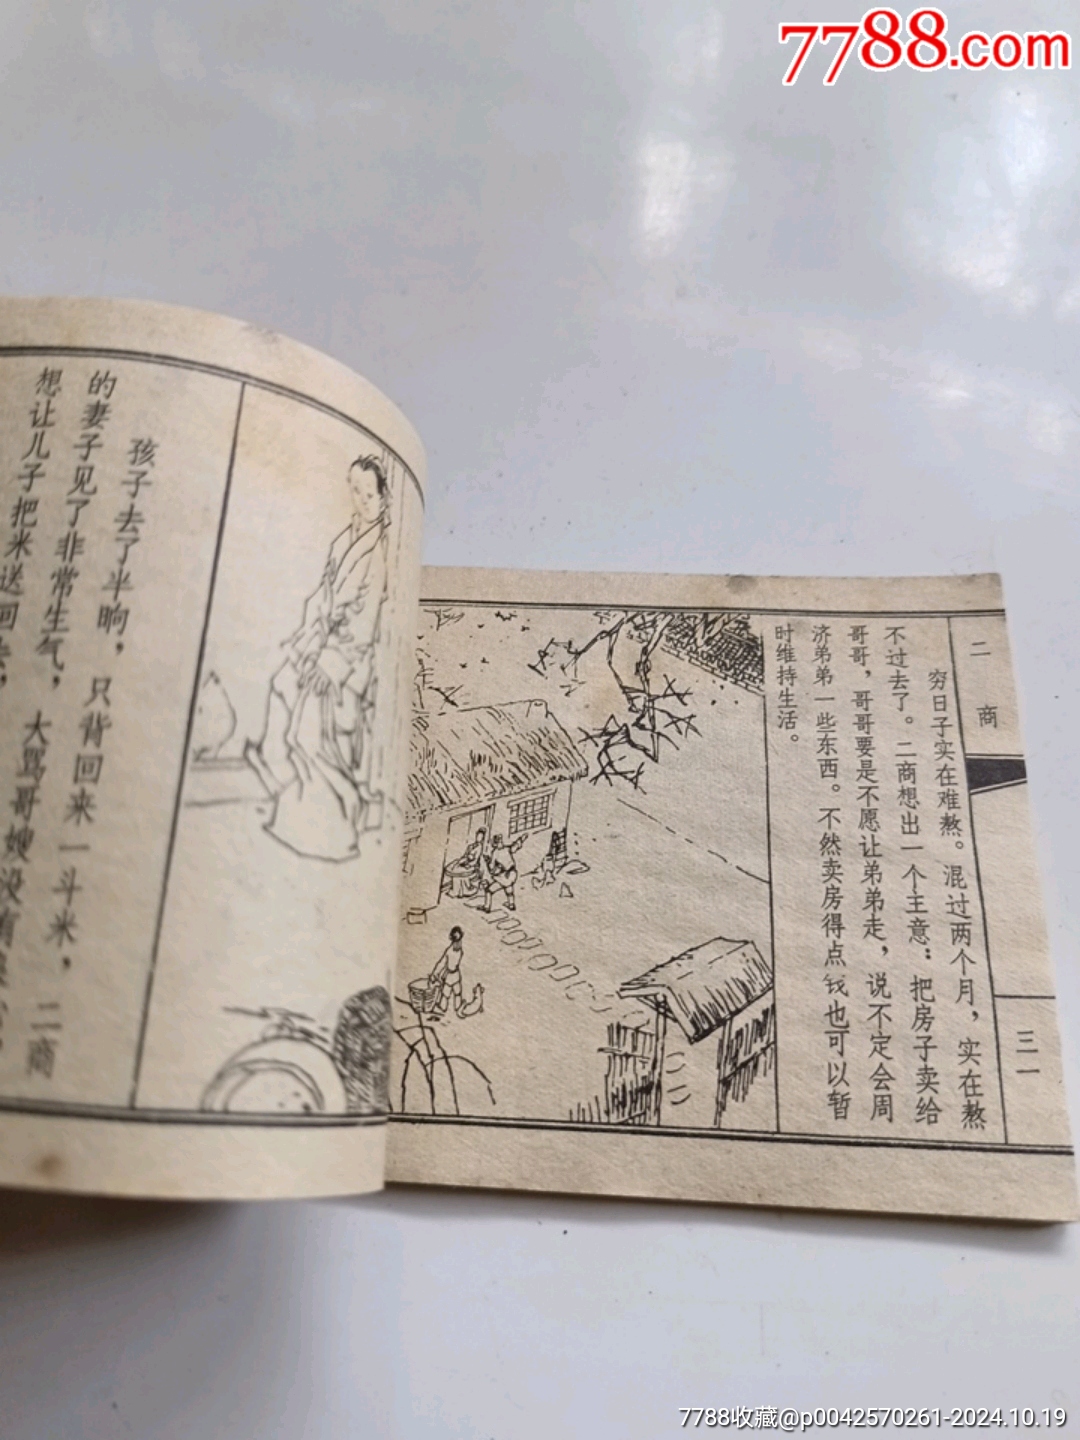 7788.com
二商
三一
穷日子实在难熬。混过两个月，实在熬
不过去了。二商想出一个主意：把房子卖给
哥哥，哥哥要是不愿让弟弟走，说不定会周
济弟弟一些东西。不然卖房得点钱也可以暂
时维持生活。
孩子去了半晌，只背回来一斗米，二商
的妻子见了非常生气，大骂哥嫂没有
想让儿子把米送回去，
7788收藏@p0042570261-2024.10.19